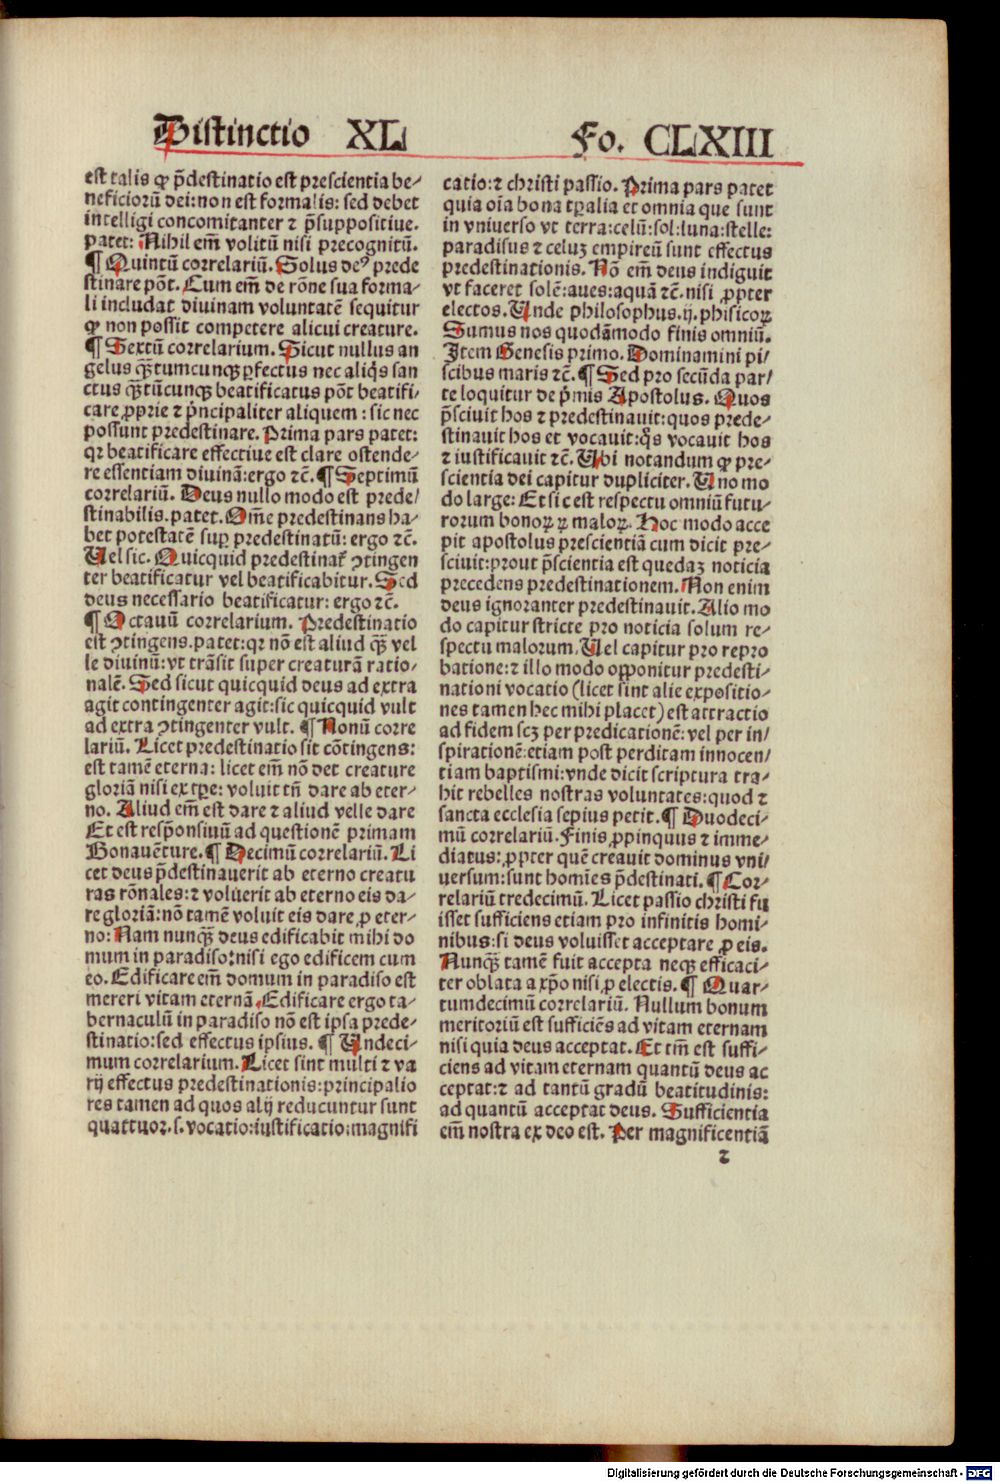 Distinctio XL Fo. CLXIII
est talis ꝙ p̄destinatio est prescientia be⸗
neficiorū dei: non est formalis: sed debet
intelligi concomitanter ⁊ p̄suppositiue.
patet: Nihil em̄ volitū nisi precognitū.
¶ Quintū correlariū. Solus deꝰ prede
stinare pōt. Cum em̄ de rōne sua forma⸗
li includat diuinam voluntatē sequitur
ꝙ non possit competere alicui creature.
¶ Sextū correlarium. Sicut nullus an
gelus qᷓꝫtumcunqꝫ ꝑfectus nec aliq̇s san
ctus qᷓꝫtūcunqꝫ beatificatus pōt beatifi⸗
care ꝓprie ⁊ pͥncipaliter aliquem: sic nec
possunt predestinare. Prima pars patet:
qꝛ beatificare effectiue est clare ostende⸗
re essentiam diuinā: ergo ⁊c̄. ¶ Septimū
correlariū. Deus nullo modo est prede⸗
stinabilis. patet. Om̄e predestinans ha⸗
bet potestatē suꝑ predestinatū: ergo ⁊c̄.
Uel sic. Quicquid predestinaṫ ꝯtingen
ter beatificatur vel beatificabitur. Sed
deus necessario beatificatur: ergo ⁊c̄.
¶ Octauū correlarium. Predestinatio
est ꝯtingens. patet: qꝛ nō est aliud qᷓꝫ vel
le diuinū: vt trāsit super creaturā ratio⸗
nalē. Sed sicut quicquid deus ad extra
agit contingenter agit: sic quicquid vult
ad extra ꝯtingenter vult. ¶ Nonū corre
lariū. Licet predestinatio sit cōtingens:
est tamē eterna: licet em̄ nō det creature
gloriā nisi ex tꝑe: voluit tn̄ dare ab eter⸗
no. Aliud em̄ est dare ⁊ aliud velle dare
Et est resp̄onsiuū ad questionē primam
Bonauēture. ¶ Decimū correlariū. Li
cet deus p̄destinauerit ab eterno creatu
ras rōnales: ⁊ voluerit ab eterno eis da⸗
re gloriā: nō tamē voluit eis dare ꝓ eter⸗
no: Nam nunqᷓꝫ deus edificabit mihi do
mum in paradiso: nisi ego edificem cum
eo. Edificare em̄ domum in paradiso est
mereri vitam eternā. Edificare ergo ta⸗
bernaculū in paradiso nō est ipsa prede⸗
stinatio: sed effectus ipsius. ¶ Undeci⸗
mum correlarium. Licet sint multi ⁊ va
rij effectus predestinationis: principalio
res tamen ad quos alij reducuntur sunt
quattuor. s. vocatio: iustificatio: magnifi
catio: ⁊ christi passio. Prima pars patet
quia oīa bona tꝑalia et omnia que sunt
in vniuerso vt terra: celū: sol: luna: stelle:
paradisus ⁊ celuꝫ empireū sunt effectus
predestinationis. Nō em̄ deus indiguit
vt faceret solē: aues: aquā ⁊c̄. nisi ꝓpter
electos. Unde philosophus. ij. phisicoꝝ
Sumus nos quodāmodo finis omniū.
Item Genesis primo. Dominamini pi⸗
scibus maris ⁊c̄. ¶ Sed pro secūda par⸗
te loquitur de pͥmis Apostolus. Quos
p̄sciuit hos ⁊ predestinauit: quos prede⸗
stinauit hos et vocauit: qͦs vocauit hos
⁊ iustificauit ⁊c̄. Ubi notandum ꝙ pre⸗
scientia dei capitur dupliciter. Uno mo
do large: Et sic est respectu omniū futu⸗
rorum bonoꝝ ⁊ maloꝝ. Hoc modo acce
pit apostolus prescientiā cum dicit pre⸗
sciuit: prout p̄scientia est quedaꝫ noticia
precedens predestinationem. Non enim
deus ignoranter predestinauit. Alio mo
do capitur stricte pro noticia solum re⸗
spectu malorum. Uel capitur pro repro
batione: ⁊ illo modo opponitur predesti⸗
nationi vocatio (licet sint alie expositio⸗
nes tamen hec mihi placet) est attractio
ad fidem scꝫ per predicationē: vel per in⸗
spirationē: etiam post perditam innocen⸗
tiam baptismi: vnde dicit scriptura tra⸗
hit rebelles nostras voluntates: quod ⁊
sancta ecclesia sepius petit. ¶ Duodeci⸗
mū correlariū. Finis ꝓpinquus ⁊ imme⸗
diatus: ꝓpter quē creauit dominus vni⸗
uersum: sunt homīes p̄destinati. ¶ Cor⸗
relariū tredecimū. Licet passio christi fu
isset sufficiens etiam pro infinitis homi⸗
nibus: si deus voluisset acceptare ꝓ eis.
Nunqᷓꝫ tamē fuit accepta neqꝫ efficaci⸗
ter oblata a xp̄o nisi ꝓ electis. ¶ Quar⸗
tumdecimū correlariū. Nullum bonum
meritoriū est sufficiēs ad vitam eternam
nisi quia deus acceptat. Et tm̄ est suffi⸗
ciens ad vitam eternam quantū deus ac
ceptat: ⁊ ad tantū gradū beatitudinis:
ad quantū acceptat deus. Sufficientia
em̄ nostra ex deo est. Per magnificentiā
⁊
Digitalisierung gefördert durch die Deutsche Forschungsgemeinschaft - DFG